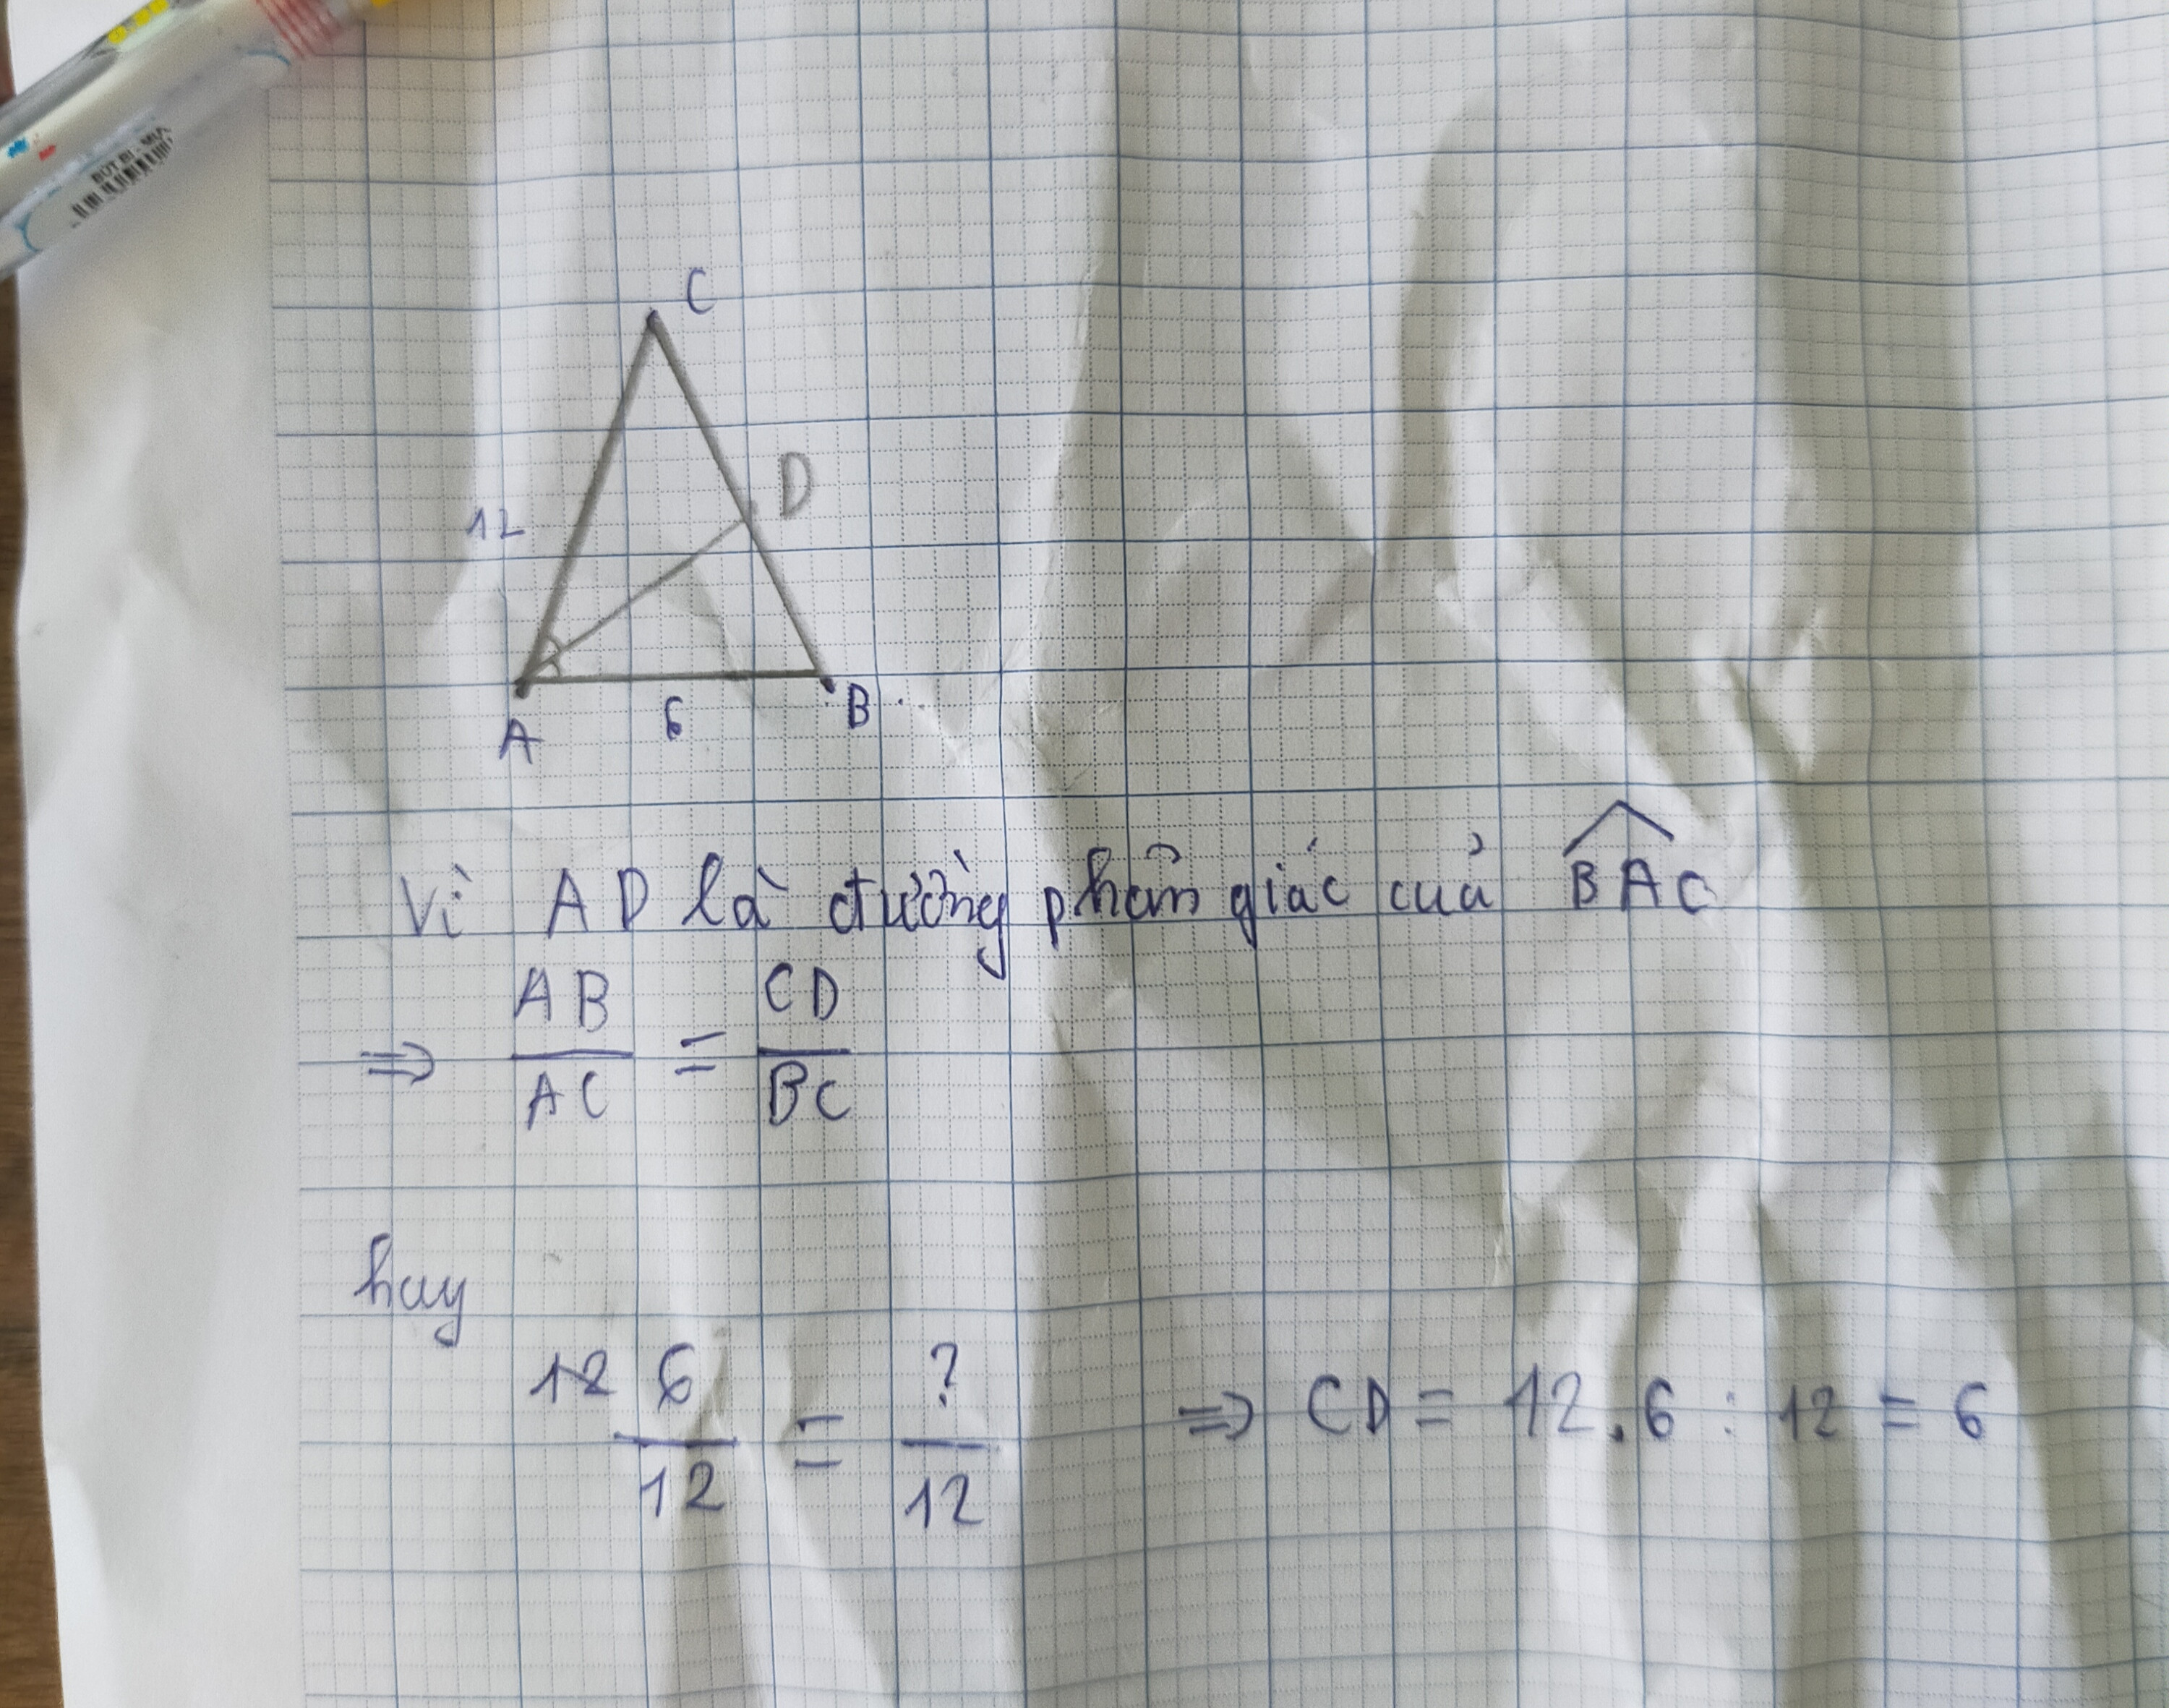 BÚT BI - MỰC
C
D
12
A
6
B
Vì AD là đường phân giác của BAC
⇒ AB/AC = CD/BC
hay
12 6/12 = ?/12 ⇒ CD = 12.6 : 12 = 6